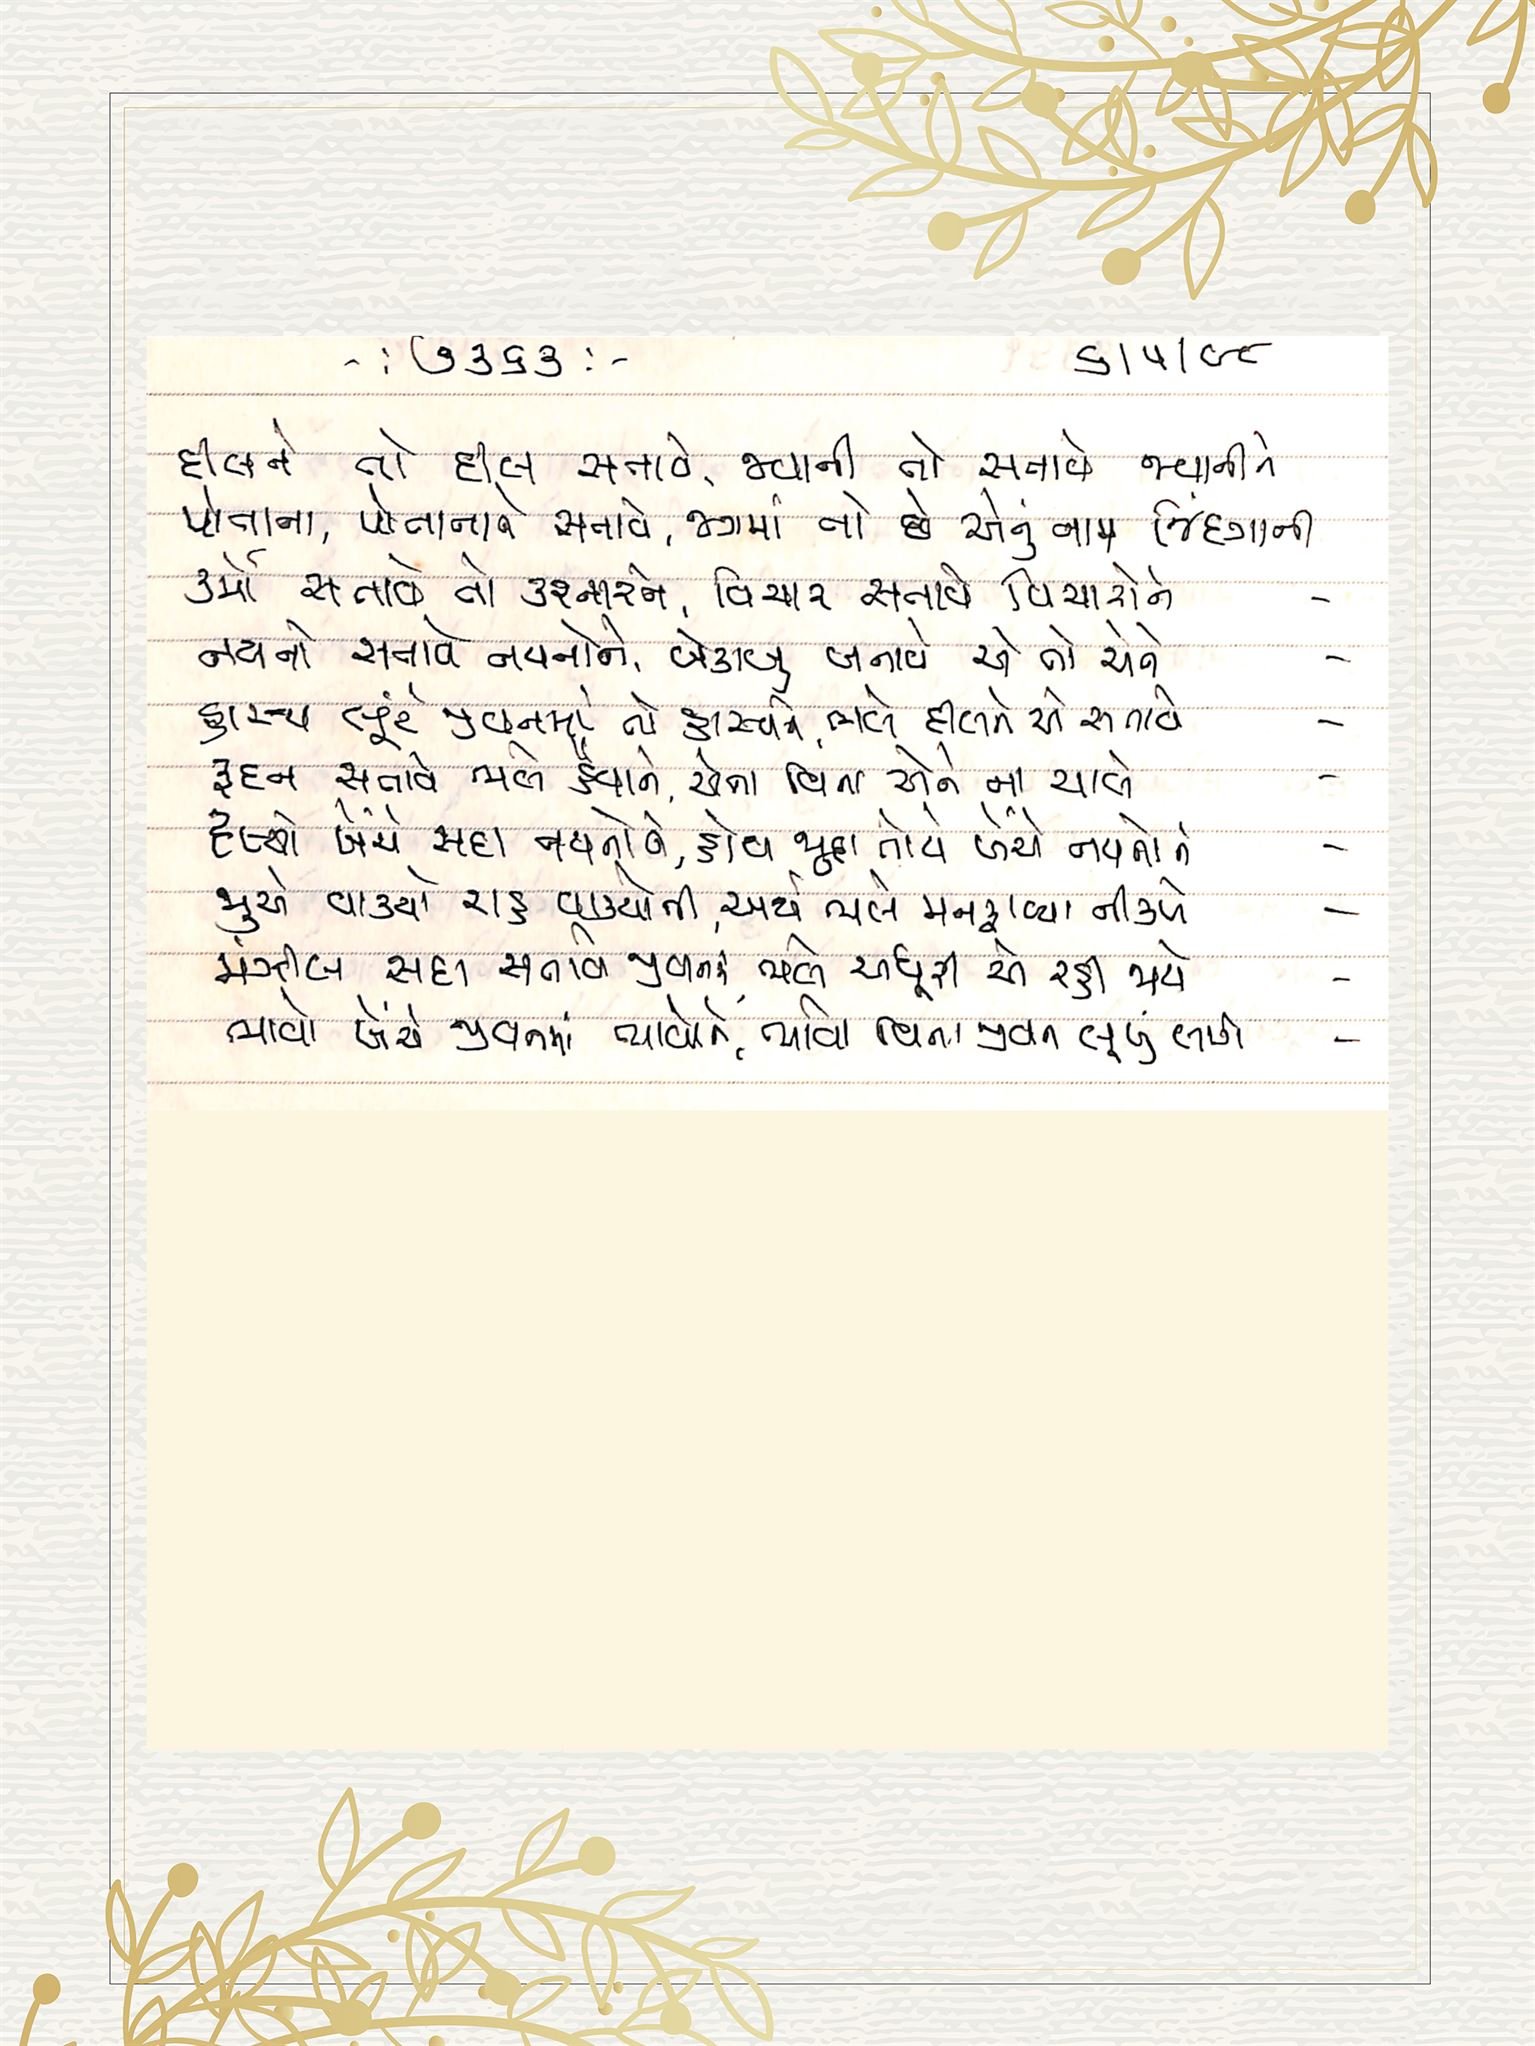 -: ૭૩૬૩ :- ૬/૫/૯૮
દીલને તો દીલ સતાવે, જવાની તો સતાવે જવાનીને
પોતાના, પોતાનાને સતાવે, જગમાં તો છે એનું નામ જિંદગાની
કર્મો સતાવે તો કરનારને, વિચાર સતાવે વિચારોને -
નયનો સતાવે નયનોને, બેકાબુ બનાવે એ તો એને -
હાસ્ય સ્ફૂરે જીવનમાં તો હાસ્યને, ભલે દીલને એ સતાવે -
રૂદન સતાવે ભલે હૈયાને, એના વિના એને ના ચાલે -
દૃશ્યો ખેંચે સદા નયનોને, હોય જુદા તોયે ખેંચે નયનોને -
જુએ વાક્યો રાહ વાક્યોની, અર્થ ભલે મનફાવ્યા નીકળે -
મંઝીલ સદા સતાવે જીવનને, ભલે અધૂરી એ રહી જાયે -
ભાવો ખેંચે જીવનમાં ભાવોને, ભાવ વિના જીવન લૂખું લાગે -